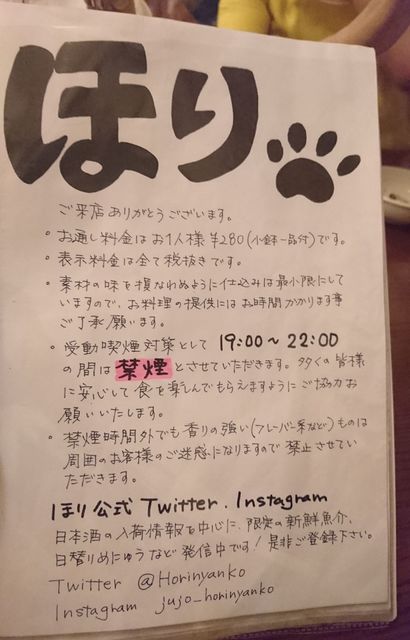 ほり
ご来店ありがとうございます。
・お通し料金はお1人様¥280(小鉢一品付)です。
・表示料金は全て税抜きです。
・素材の味を損なわぬように仕込みは最小限にして
いますので、お料理の提供にはお時間かかります事
ご了承願います。
・受動喫煙対策として 19:00~22:00
の間は禁煙とさせていただきます。多くの皆様
に安心して食を楽しんでもらえますようにご協力お
願いいたします。
・禁煙時間外でも香りの強い(フレーバー系など)ものは
周囲のお客様のご迷惑になりますので禁止させてい
ただきます。
ほり公式 Twitter. Instagram
日本酒の入荷情報を中心に、限定の新鮮魚介、
日替りめにゅうなど発信中です!是非ご登録下さい。
Twitter @Horinyanko
Instagram jujo_horinyanko